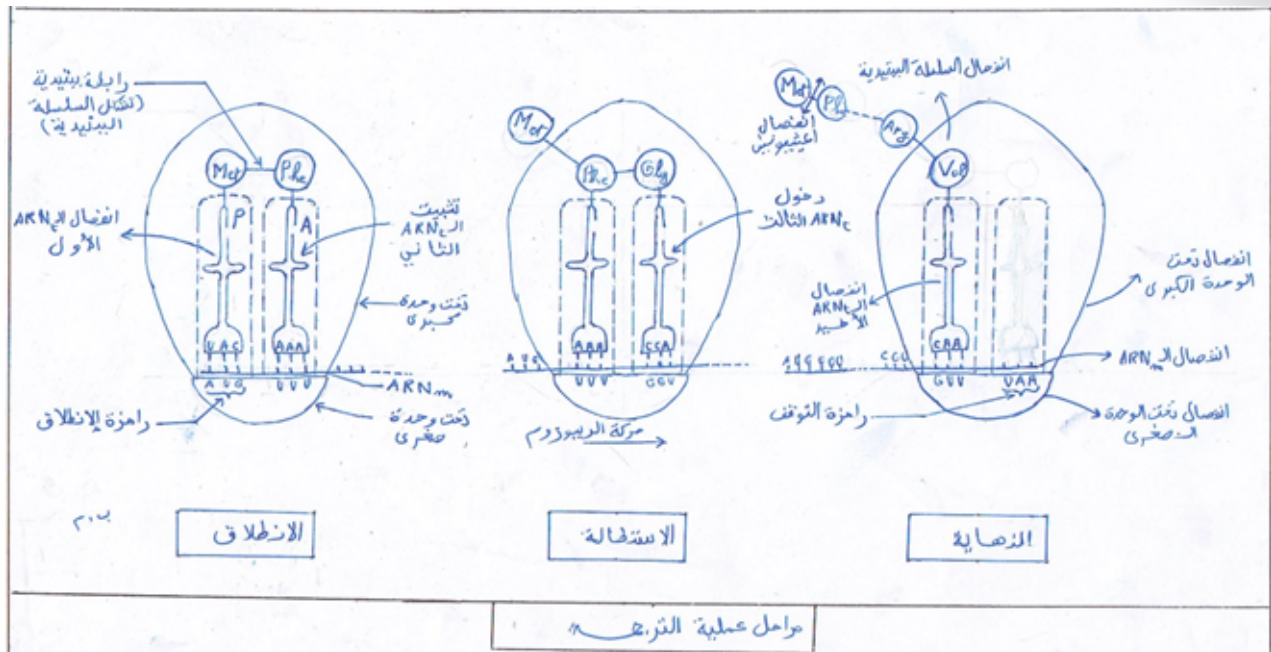 رابطة ببتيدية
(تشكل السلسلة
الببتيدية)
Met
Phe
انفصال الـ ARNt
الأول
P
A
تثبيت
الـ ARNt
الثاني
تحت وحدة
كبرى
UAC
AAA
AUG
UUU
ARNm
رامزة الانطلاق
تحت وحدة
صغرى
الانطلاق
ب.م
Met
Phe
Gly
دخول
ARNt الثالث
AUG
AAA
CCA
UUU
GGU
حركة الريبوزوم
الاستطالة
انفصال السلسلة الببتيدية
Met
Ph
Arg
Val
انفصال
الميثيونين
انفصال
الـ ARNt
الأخير
انفصال تحت
الوحدة الكبرى
CAA
انفصال الـ ARNm
GUU
UAA
رامزة التوقف
انفصال تحت الوحدة
الصغرى
النهاية
مراحل عملية الترجمة